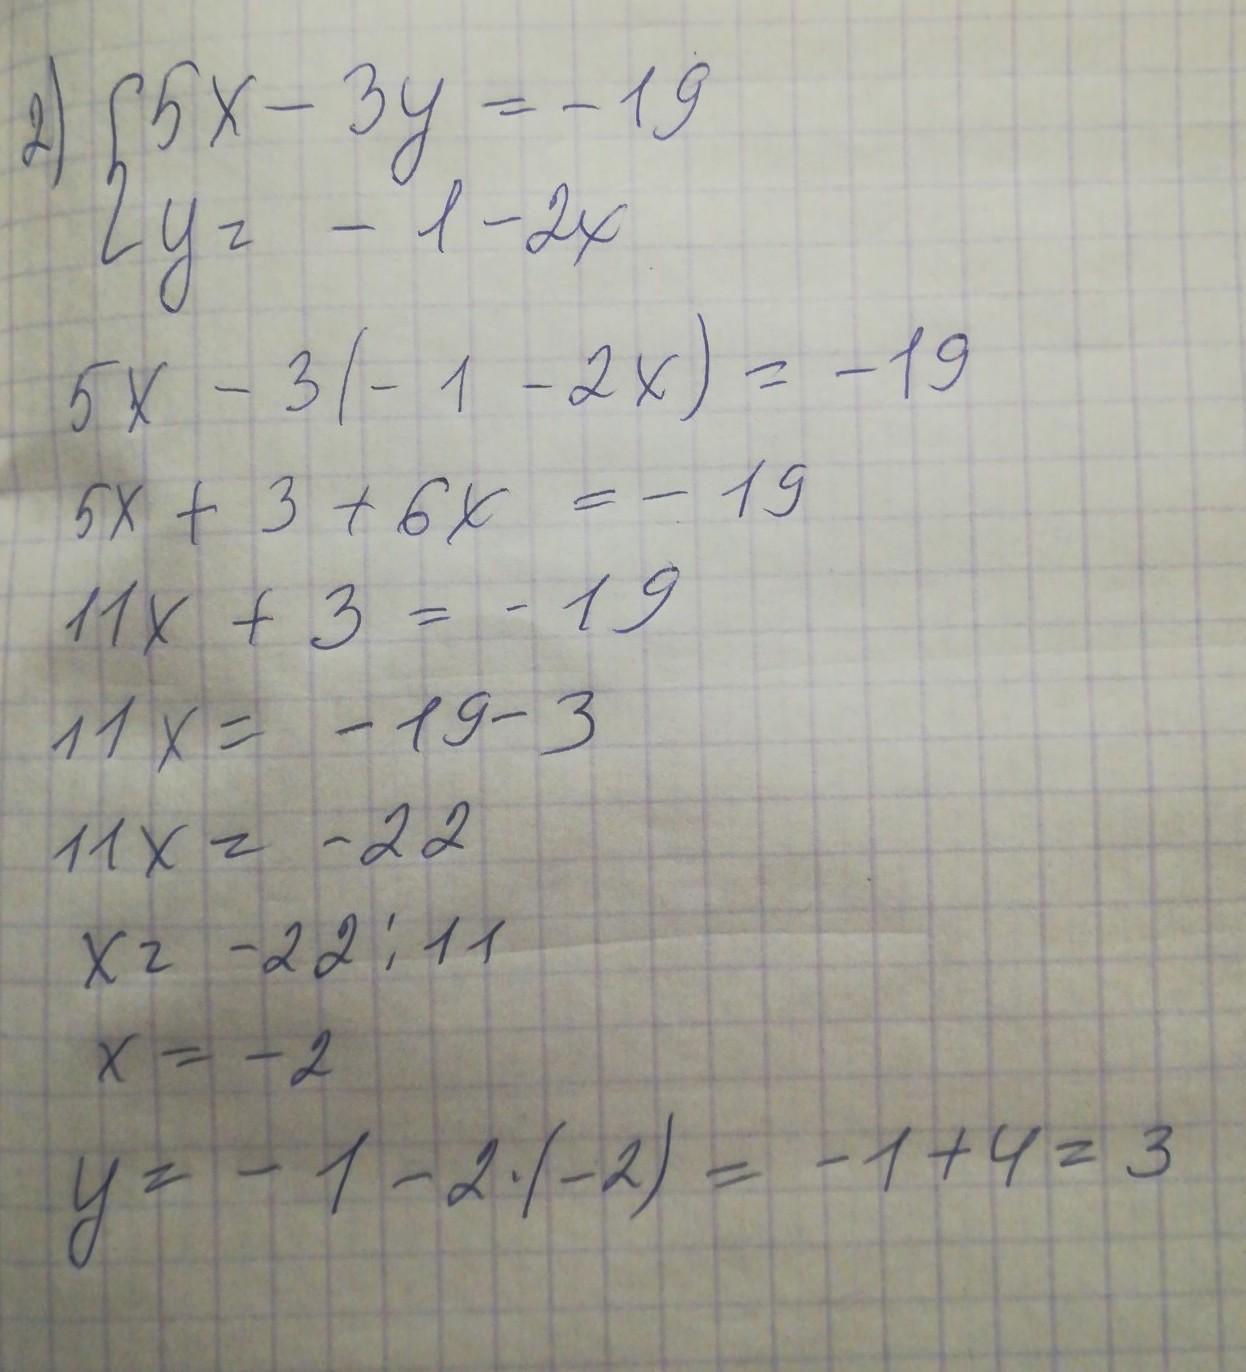 2) { 5x - 3y = -19
y = -1 - 2x
5x - 3(-1 - 2x) = -19
5x + 3 + 6x = -19
11x + 3 = -19
11x = -19 - 3
11x = -22
x = -22 : 11
x = -2
y = -1 - 2·(-2) = -1 + 4 = 3